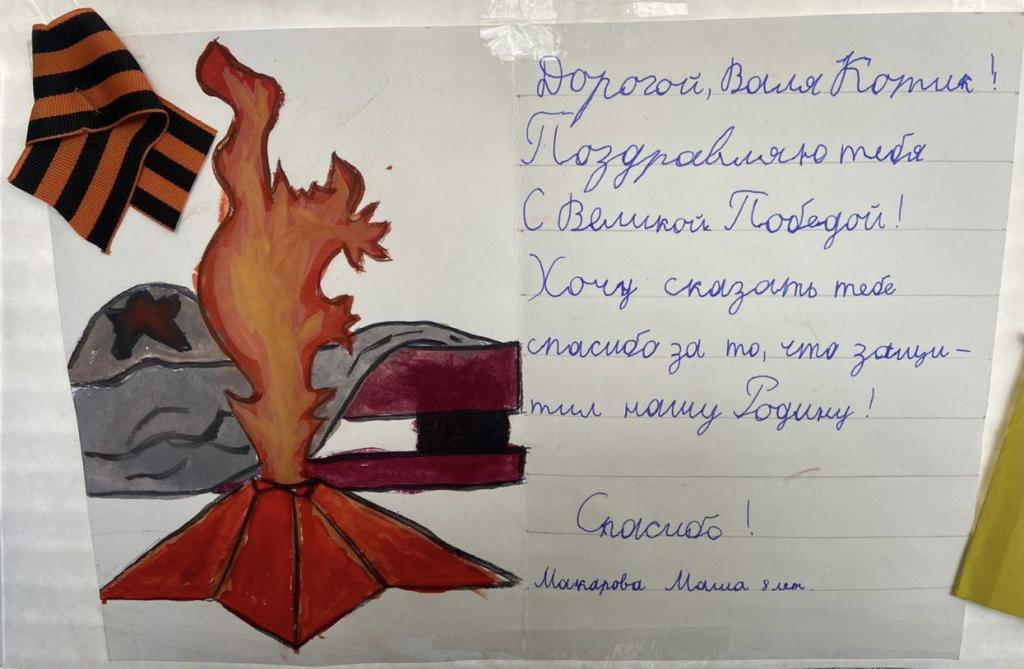 Дорогой, Валя Котик!
Поздравляю тебя
С Великой Победой!
Хочу сказать тебе
спасибо за то, что защи-
тил нашу Родину!
Спасибо!
Макарова Маша 8 лет.